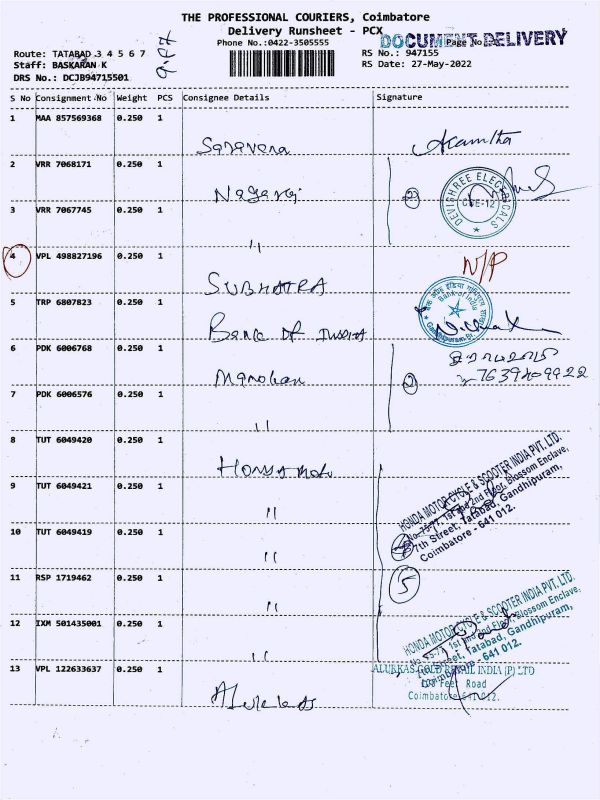 THE PROFESSIONAL COURIERS, Coimbatore
Delivery Runsheet - PCX
DOCUMENT DELIVERY
Phone No.:0422-3505555
Page No
Route: TATABAD 3 4 5 6 7
RS No.: 947155
Staff: BASKARAN K
RS Date: 27-May-2022
DRS No.: DCJB94715501
S No Consignment No Weight PCS Consignee Details Signature
1 MAA 857569368 0.250 1
Saravana
2 VRR 7068171 0.250 1
Nagaraj
② DEVISHREE ELECTRICALS CBE-12
3 VRR 7067745 0.250 1
"
4 VPL 498827196 0.250 1
SUBHATRA
N/P
5 TRP 6807823 0.250 1
Bank of India
Bank of India
6 PDK 6006768 0.250 1
Manohar
②
7639409922
7 PDK 6006576 0.250 1
"
8 TUT 6049420 0.250 1
Honda Moto
9 TUT 6049421 0.250 1
"
HONDA MOTOR CYCLE & SCOOTER INDIA PVT. LTD.
No. 75-77, 1st and 2nd Floor, Blossom Enclave,
7th Street, Tatabad, Gandhipuram,
Coimbatore - 641 012.
10 TUT 6049419 0.250 1
"
11 RSP 1719462 0.250 1
"
⑤
12 IXM 501435001 0.250 1
"
HONDA MOTOR CYCLE & SCOOTER INDIA PVT. LTD.
No. 75-77, 1st and 2nd Floor, Blossom Enclave,
Street, Tatabad, Gandhipuram,
Coimbatore - 641 012.
13 VPL 122633637 0.250 1
Alukkas
ALUKKAS GOLD RETAIL INDIA (P) LTD
Feet Road
Coimbatore 641 012.